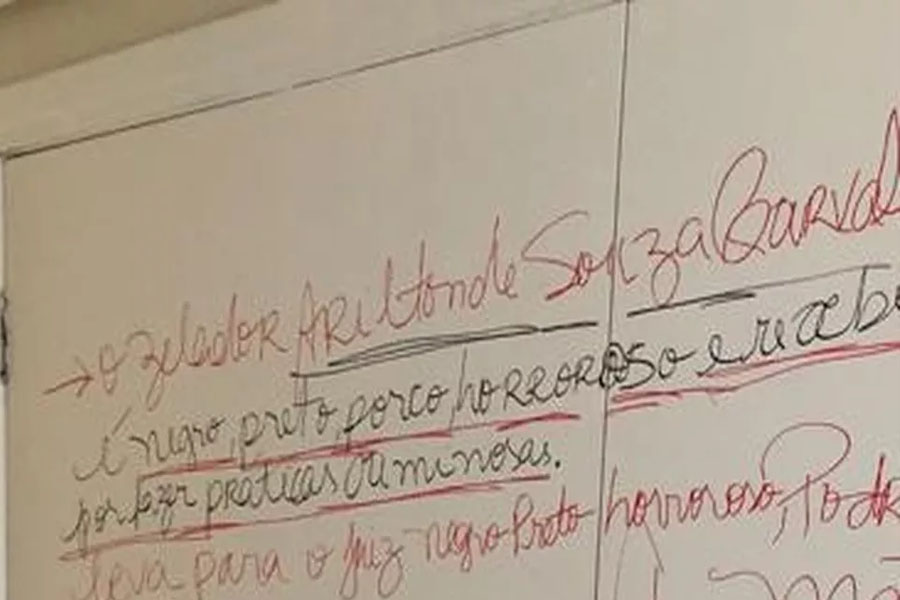 → O zelador ARilton de Souza Barval
é negro, preto, porco, horroroso e recebe
por fazer praticas criminosas.
leva para o juiz negro Preto horroroso, Pode